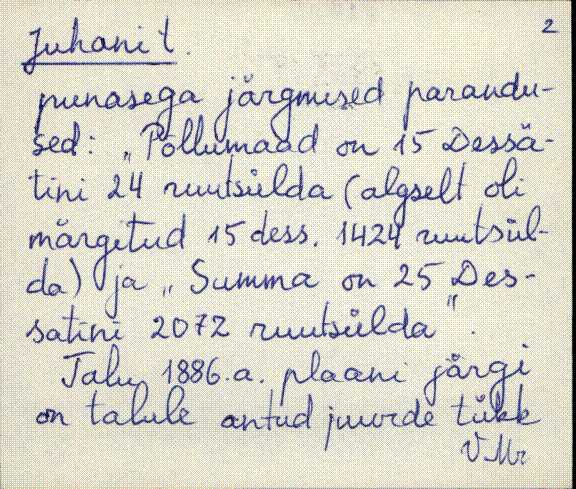 2
Juhani t.
punasega järgmised parandu-
sed: „Põllumaad on 15 Dessä-
tini 24 ruutsülda (algselt oli
märgitud 15 dess. 1424 ruutsül-
da) ja „Summa on 25 Des-
satini 2072 ruutsülda".
Talu 1886.a. plaani järgi
on talule antud juurde tükk
V. Mr